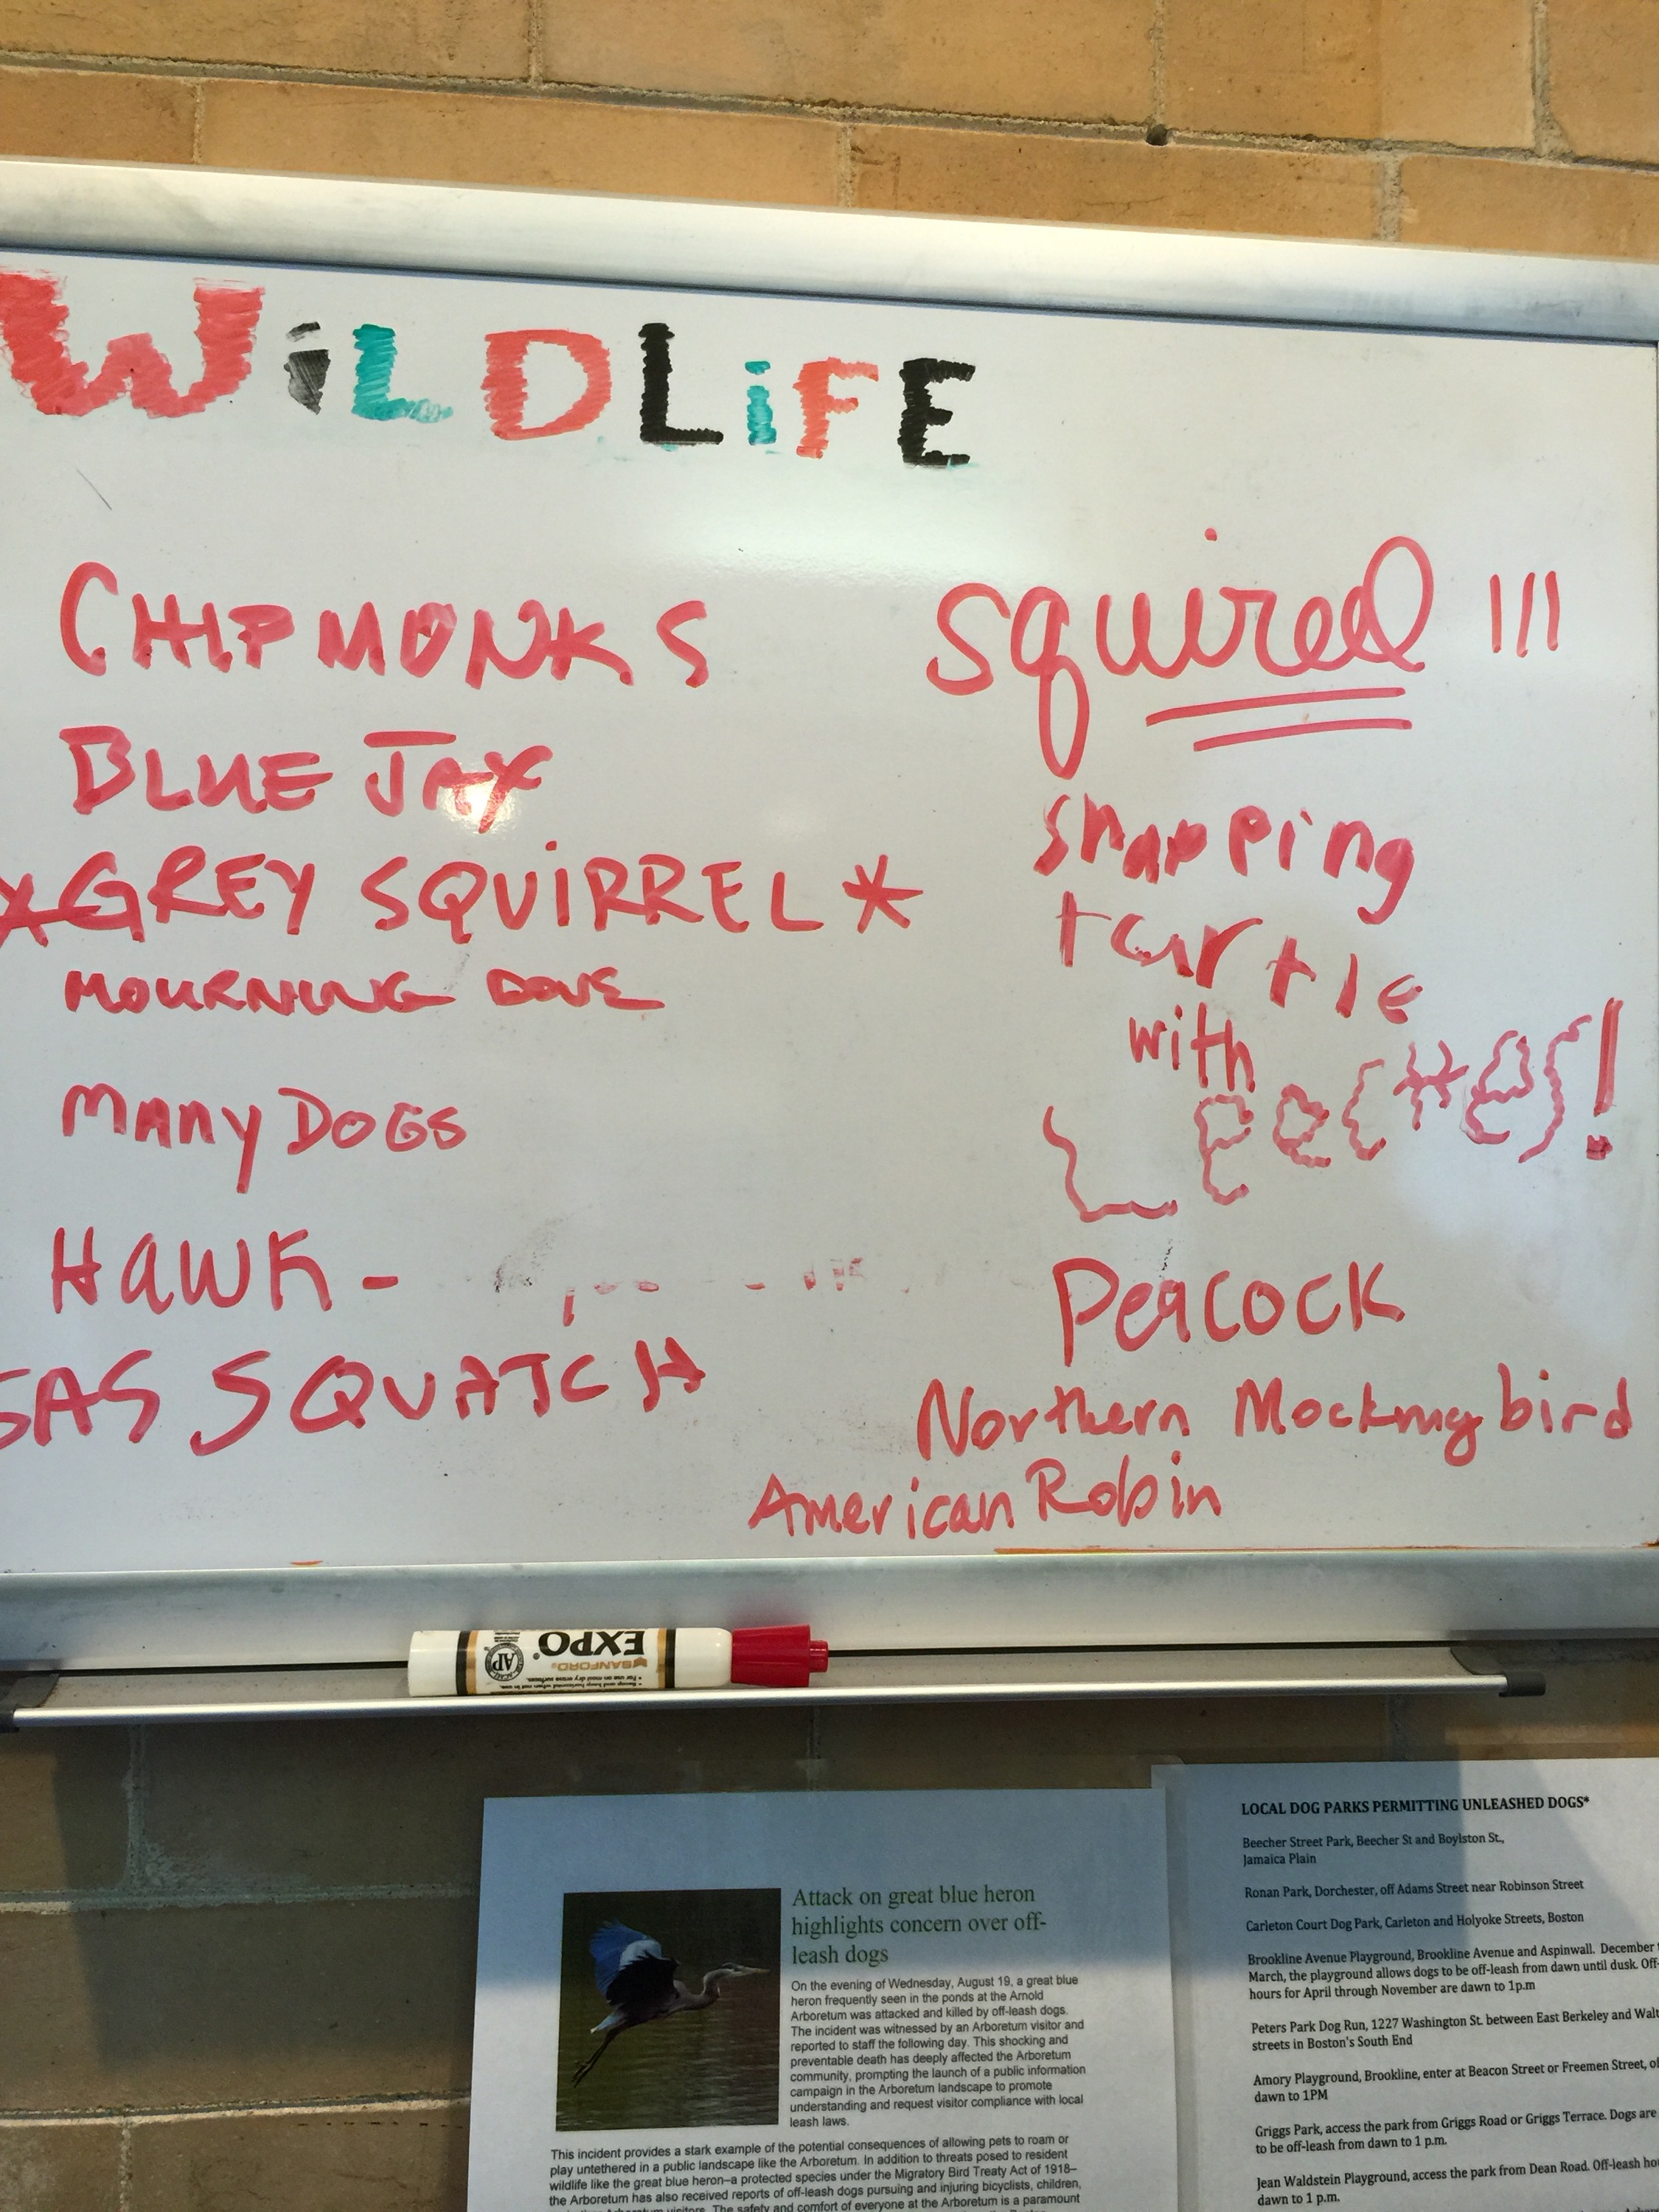 WiLDLiFE
CHIPMONKS
BLUE JAY
*GREY SQUiRREL*
MOURNING DOVE
Many DOGS
HAWK -
SASSQUATCH
squirel !!!
snapping
turtle
with
Peacock
Northern Mockingbird
American Robin
EXPO
SANFORD
AP
LOCAL DOG PARKS PERMITTING UNLEASHED DOGS*
Beecher Street Park, Beecher St and Boylston St.,
Jamaica Plain
Ronan Park, Dorchester, off Adams Street near Robinson Street
Carleton Court Dog Park, Carleton and Holyoke Streets, Boston
Brookline Avenue Playground, Brookline Avenue and Aspinwall. December
March, the playground allows dogs to be off-leash from dawn until dusk. Off-
hours for April through November are dawn to 1p.m
Peters Park Dog Run, 1227 Washington St. between East Berkeley and
streets in Boston's South End
Amory Playground, Brookline, enter at Beacon Street or Freemen Street,
dawn to 1PM
Griggs Park, access the park from Griggs Road or Griggs Terrace. Dogs are
to be off-leash from dawn to 1 p.m.
Jean Waldstein Playground, access the park from Dean Road. Off-leash
dawn to 1 p.m.
Attack on great blue heron
highlights concern over off-
leash dogs
On the evening of Wednesday, August 19, a great blue
heron frequently seen in the ponds at the Arnold
Arboretum was attacked and killed by off-leash dogs.
The incident was witnessed by an Arboretum visitor and
reported to staff the following day. This shocking and
preventable death has deeply affected the Arboretum
community, prompting the launch of a public information
campaign in the Arboretum landscape to promote
understanding and request visitor compliance with local
leash laws.
This incident provides a stark example of the potential consequences of allowing pets to roam or
play untethered in a public landscape like the Arboretum. In addition to threats posed to resident
wildlife like the great blue heron–a protected species under the Migratory Bird Treaty Act of 1918–
the Arboretum has also received reports of off-leash dogs pursuing and injuring bicyclists, children,
visitors. The safety and comfort of everyone at the Arboretum is a paramount